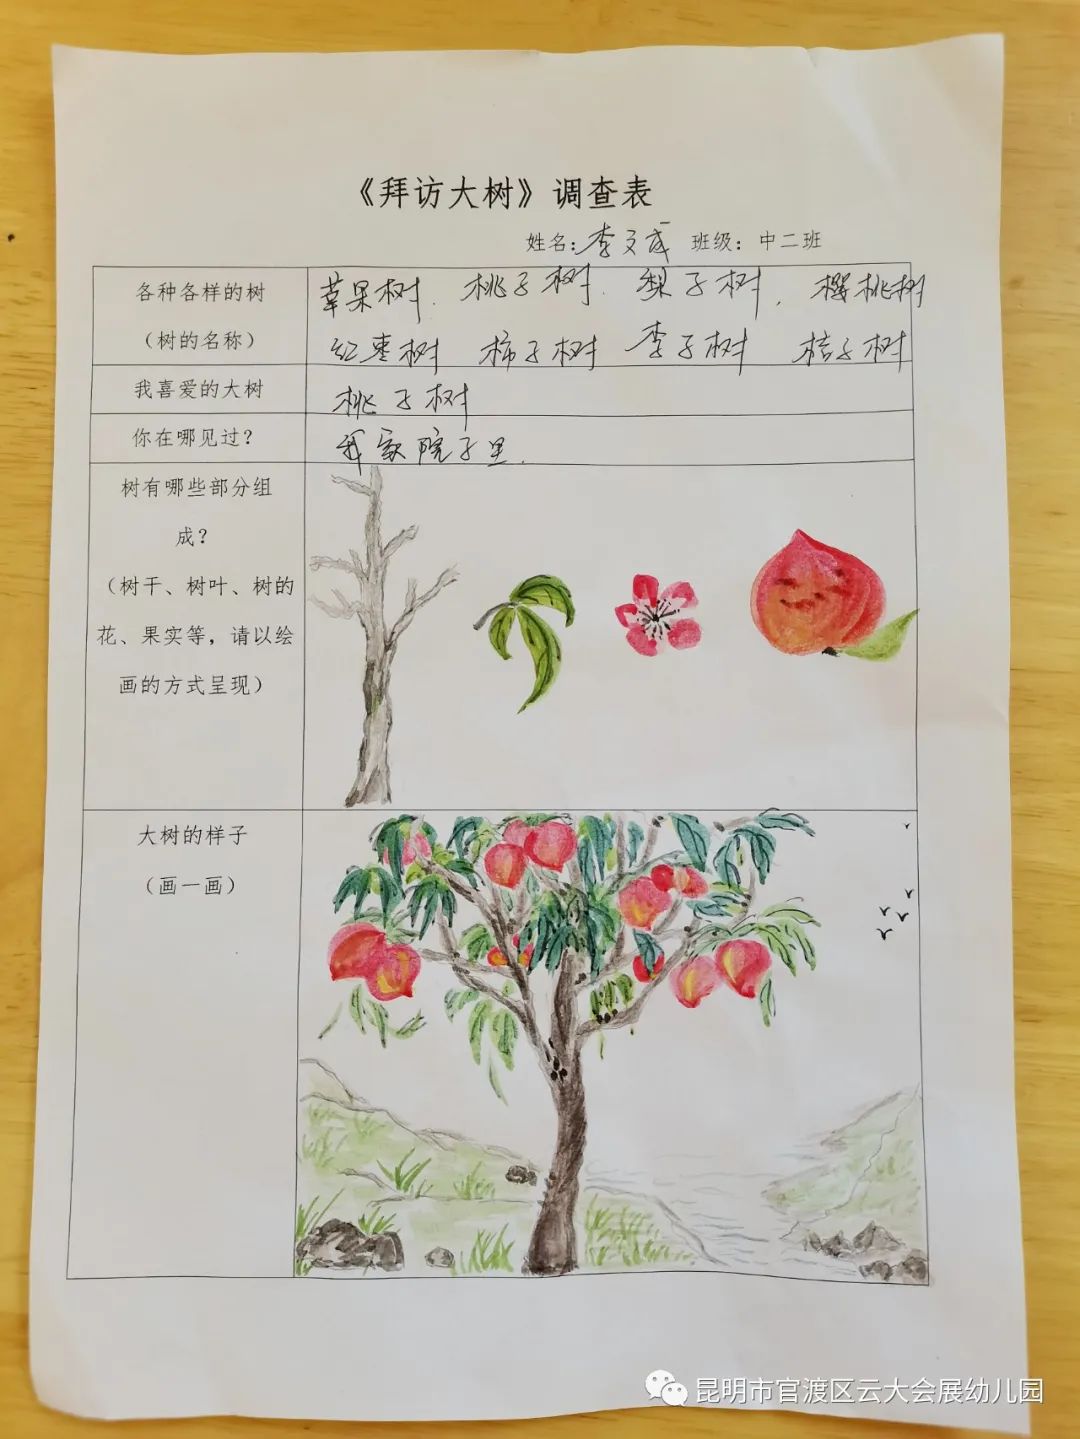 《拜访大树》调查表
姓名:李文成 班级：中二班
各种各样的树
（树的名称）
苹果树. 桃子树. 梨子树. 樱桃树
红枣树 柿子树 李子树 桔子树
我喜爱的大树
桃子树
你在哪见过？
我家院子里.
树有哪些部分组
成？
（树干、树叶、树的
花、果实等，请以绘
画的方式呈现）
大树的样子
（画一画）
昆明市官渡区云大会展幼儿园